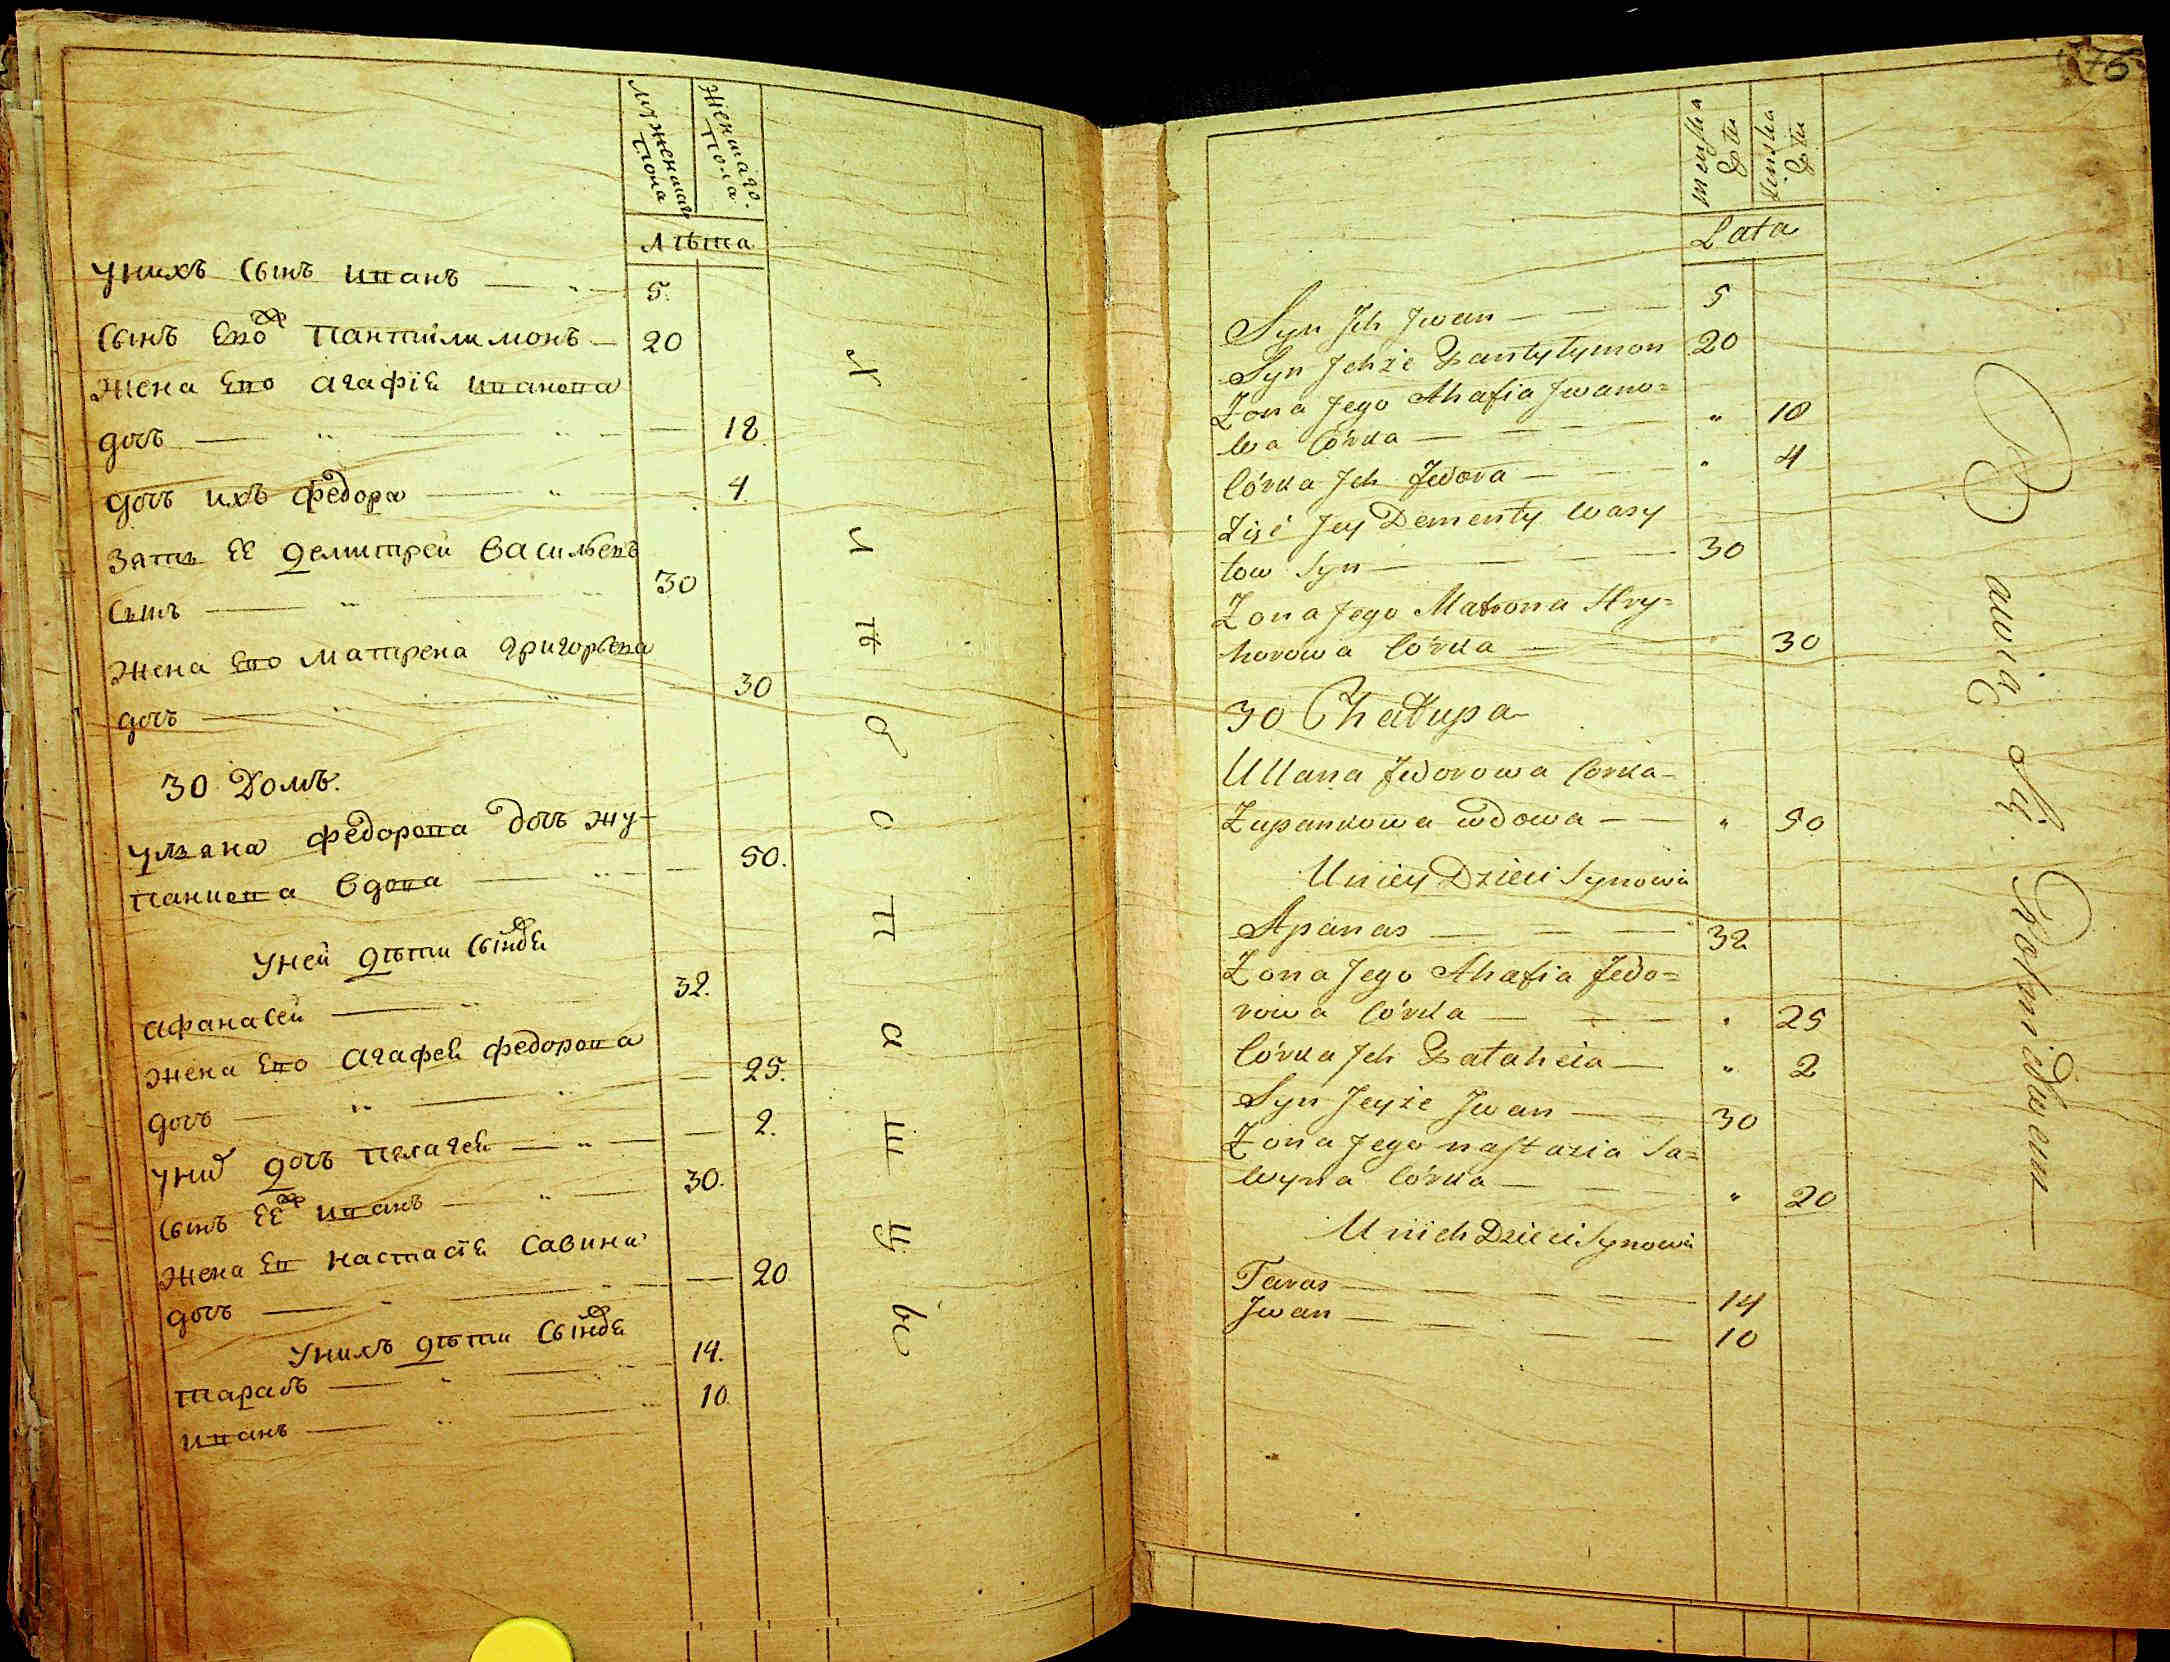 мужескаго пола
женскаго пола.
лѣта
у нихъ сынъ иванъ — 5.
сынъ его ж пантилимонъ — 20
жена его агафіѣ иванова
дочь — 18.
дочь ихъ федора — 4.
зять ЕЕ демитрей васильевъ
сынъ — 30
жена его матрена григорьева
дочь — 30
30 Домъ.
ульяна федорова дочь жу-
панкова вдова — 50.
у ней дѣти сыновѣ
афанасей — 32.
жена его агафеѣ федорова
дочь — 25.
у них дочь пелагеѣ — 2.
сынъ ЕЕ ж иванъ — 30.
жена ев настасіѣ савина
дочь — 20
у нихъ дѣти сыновѣ
тарасъ — 14.
иванъ — 10.
хлѣбопашцы
76
Menska Płci
Zenska Płci
Lata
Syn Jch Jwan — 5
Syn Jchże Pantylymon 20
Zona Jego Ahafia Jwano=
wa Córka — " 18
Córka Jch Fedora — " 4
Zięć Jey Dementy Wasy
low Syn — 30
Zona Jego Matrona Hry=
horowa Córka — " 30
30 Chałupa
Ullana Fedorowa Corka
Zupankowa wdowa — " 50
U niey Dzieci Synowie
Apanas — 32
Zona Jego Ahafia Fedo=
rowa Córka — " 25
Córka Jch Pałaheia — " 2
Syn Jeyże Jwan — 30
Zona Jego nastazia Sa=
wyna Córka — " 20
U nich Dzieci Synowie
Taras — 14
Jwan — 10
Bawią Się Rolnictwem